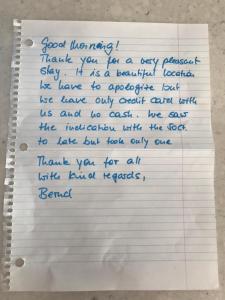 Good Morning!
Thank you for a very pleasant
stay. It is a beautiful location
We have to apologize but
we have only credit card with
us and no cash. We saw
the indication with the 50ct.
to late but took only one
Thank you for all
with kind regards,
Bernd